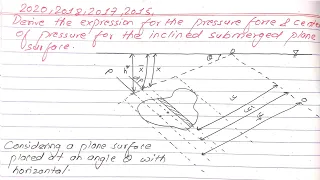 2020, 2018, 2017, 2015.
Derive the expression for the pressure force & center
of pressure for the inclined submerged plane
surface.
Considering a plane surface
placed at an angle θ with
horizontal: